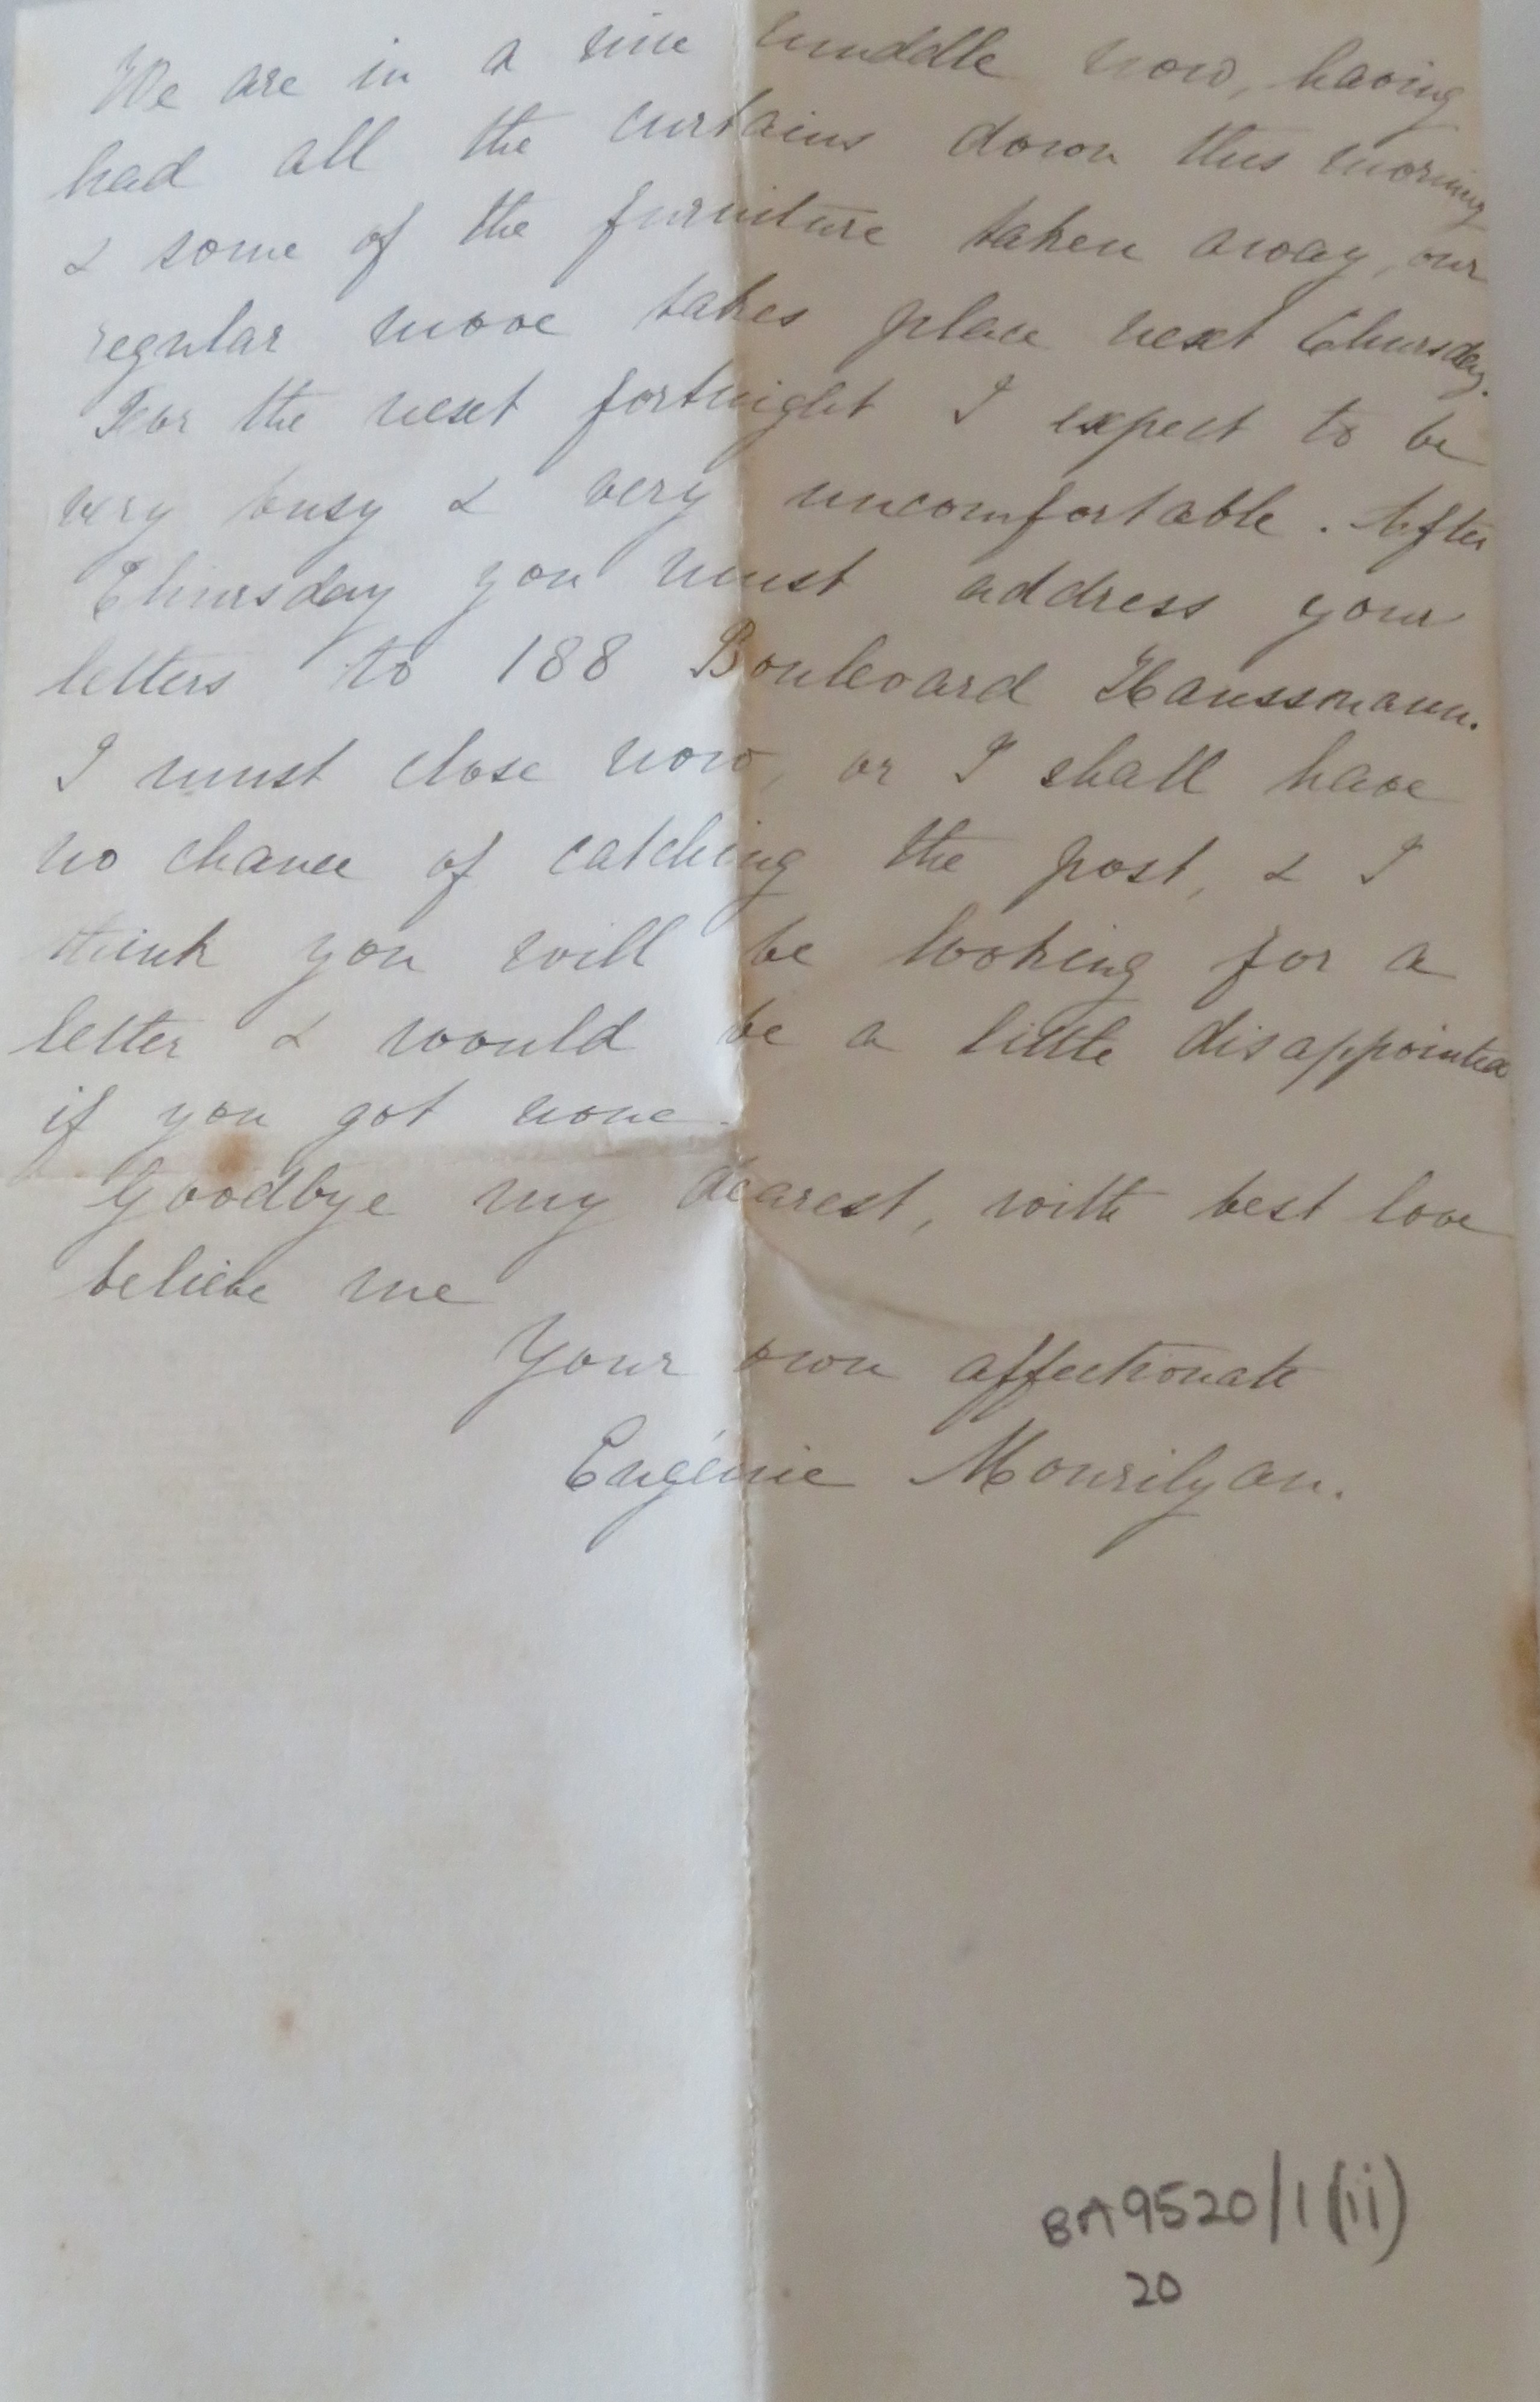 We are in a nice muddle now, having
had all the curtains down this morning
& some of the furniture taken away, our
regular move takes place next Thursday.
For the next fortnight I expect to be
very busy & very uncomfortable. After
Thursday you must address your
letters to 188 Boulevard Haussmann.
I must close now, or I shall have
no chance of catching the post, & I
think you will be looking for a
letter & would be a little disappointed
if you got none.
Goodbye my dearest, with best love
believe me
Your own affectionate
Eugénie Mourilyan.
BA9520/1(ii)
20